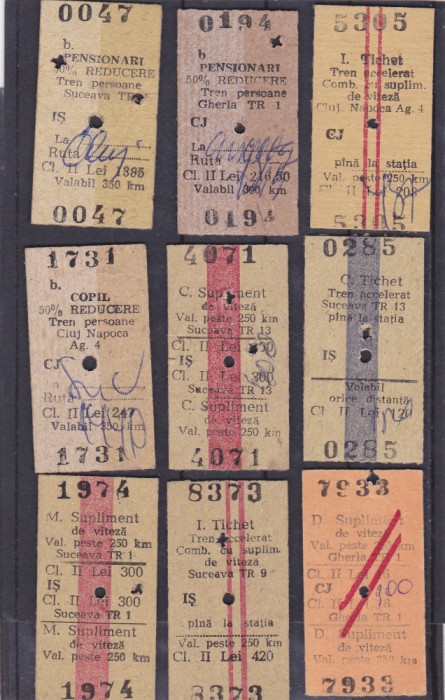 0047
b.
PENSIONARI
50% REDUCERE
Tren persoane
Suceava TR
IȘ
La
Ruta
Cl. II Lei 1385
Valabil 350 km
0047
0194
b.
PENSIONARI
50% REDUCERE
Tren persoane
Gherla TR 1
CJ
La
Ruta
Cl. II Lei 216,50
Valabil 300 km
0194
5305
I. Tichet
Tren accelerat
Comb. cu suplim.
de viteză
Cluj. Napoca Ag. 4
CJ
pînă la stația
Val. peste 250 km
Cl. II Lei 208
5305
1731
b.
COPIL
50% REDUCERE
Tren persoane
Cluj Napoca
Ag. 4
CJ
La
Ruta
Cl. II Lei 247
Valabil 350 km
1731
4071
C. Supliment
de viteză
Val. peste 250 km
Suceava TR 13
Cl. II Lei 300
IȘ
Cl. II Lei 300
Suceava TR 13
C. Supliment
de viteză
Val. peste 250 km
4071
0285
C. Tichet
Tren accelerat
Suceava TR 13
pînă la stația
IȘ
Valabil
orice distanță
Cl. II Lei 120
0285
1974
M. Supliment
de viteză
Val. peste 250 km
Suceava TR 1
Cl. II Lei 300
IȘ
Cl. II Lei 300
Suceava TR 1
M. Supliment
de viteză
Val. peste 250 km
1974
8373
I. Tichet
Tren accelerat
Comb. cu suplim.
de viteză
Suceava TR 9
IȘ
pînă la stația
Val. peste 250 km
Cl. II Lei 420
8373
7933
D. Supliment
de viteză
Val. peste 250 km
Gherla TR 1
Cl. II Lei 76
CJ 100
Cl. II Lei 76
Gherla TR 1
D. Supliment
de viteză
Val. peste 250 km
7933